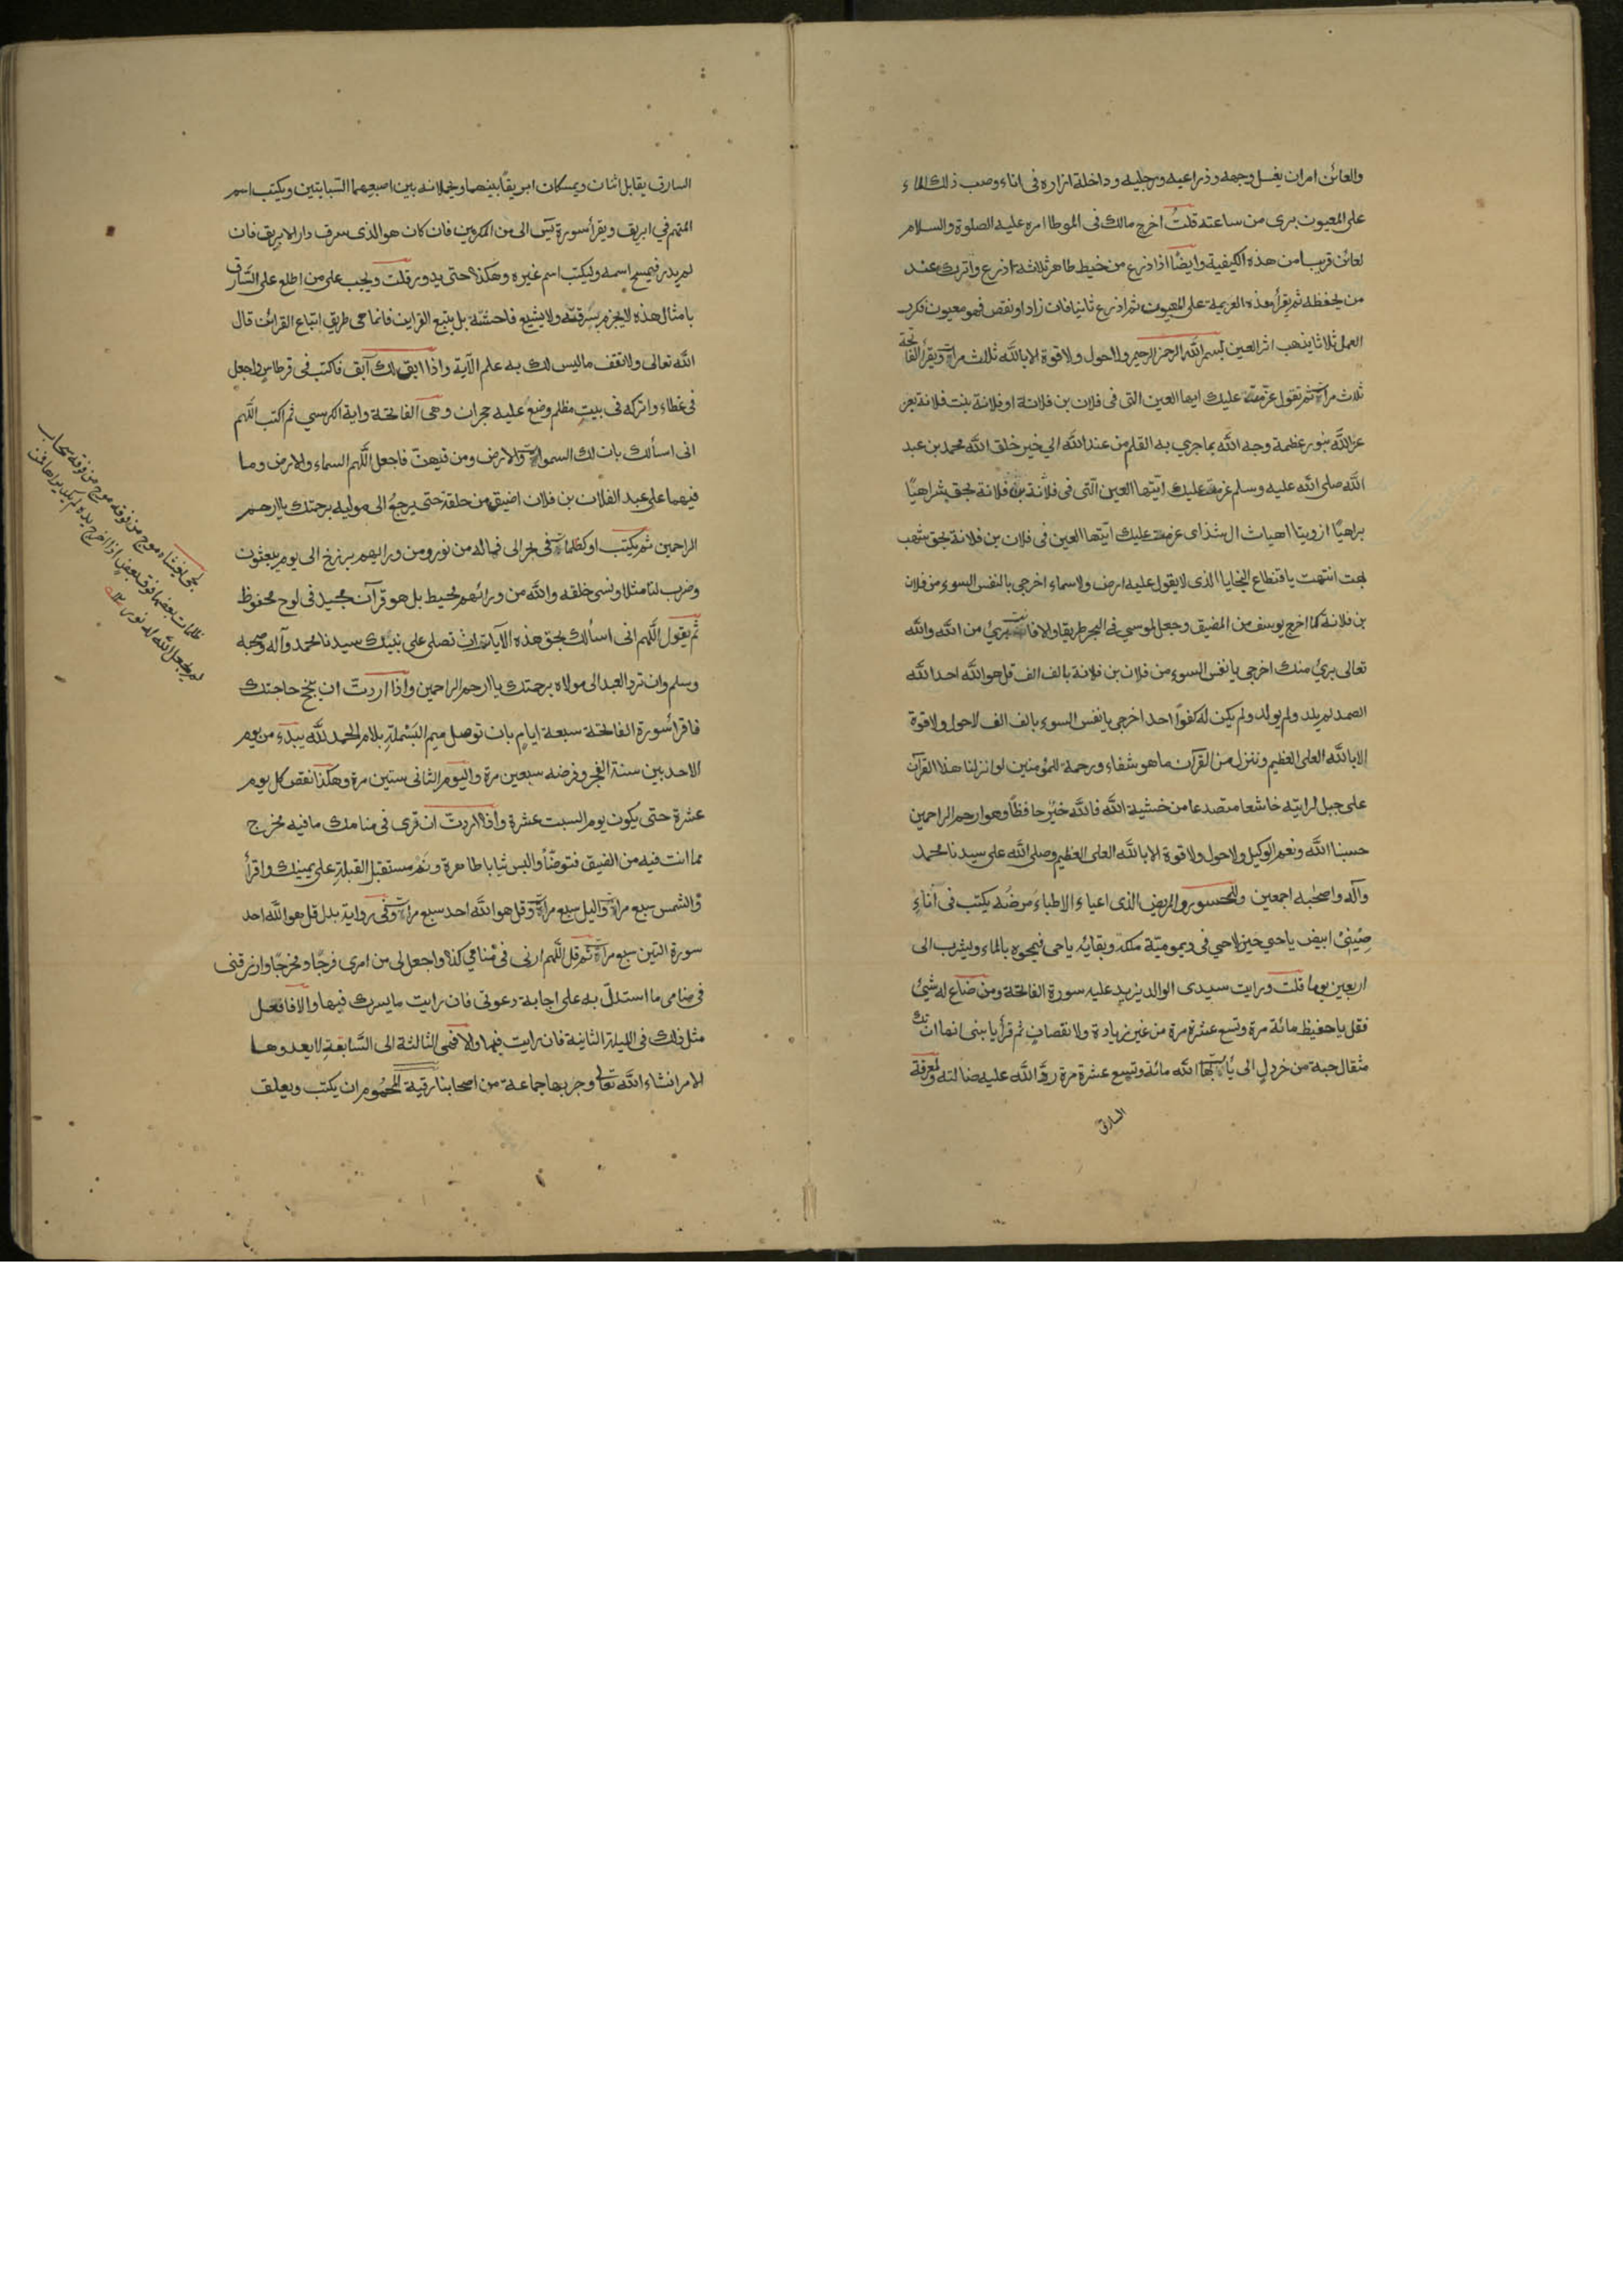 والعائن امران يغسل وجهه وذراعيه ورجليه وداخلة ازاره فى اناء وصب ذلك الماء
على المعيون برى من ساعته قلتُ اخرج مالك فى الموطا امره عليه الصلوة والسلام
لعائن قريبا من هذه الكيفية وايضًا اذا ذرع من خيط طاهر ثلاثة اذرع واترك عند
من يحفظه ثم يقرأ هذه العزيمة على المعيون ثم اذرع ثانيا فان زاد او نقص فهو معيون فكرر
العمل ثلاثا يذهب اثر العين بسم الله الرحمن الرحيم ولا حول ولا قوة الا بالله ثلاث مرات ويقرأ الفاتحة
ثلاث مرات ثم تقول عزمت عليك ايها العين التى فى فلان بن فلانة او فلانة بنت فلانة بعز
عز الله بنور عظمة وجه الله بما جرى به القلم من عند الله الى خير خلق الله محمد بن عبد
الله صلى الله عليه وسلم عزمت عليك ايتها العين الّتى فى فلانة بن فلانة بحق شراهيًا
براهيًا ازويتا اهيات ال شذاى عزمت عليك ايّتها العين فى فلان بن فلانة بحق شهب
بهت انتهت يا قنطاع النجايا الذى لا يقول عليه ارض ولا سماء اخرجى يا نفس السوء من فلان
بن فلانة كما اخرج يوسف من المضيق وجعل لموسى فى البحر طريقا والا فانت بريئ من الله والله
تعالى برئ منك اخرجى يا نفس السوء من فلان بن فلانة بالف الف قل هو الله احد الله
الصمد لم يلد ولم يولد ولم يكن له كفوًا احد اخرجى يا نفس السوء بالف الف لا حول ولا قوة
الا بالله العلى العظيم وننزل من القرآن ما هو شفاء ورحمة للمؤمنين لو انزلنا هذا القرآن
على جبل لرايته خاشعا متصدعا من خشية الله فالله خيرٌ حافظًا وهو ارحم الراحمين
حسبنا الله ونعم الوكيل ولا حول ولا قوة الا بالله العلى العظيم وصلى الله على سيدنا محمد
وآله واصحابه اجمعين وللمسحور والمريض الذى اعياء الاطباءَ مرضُه يكتب فى اناءٍ
صِينىٍّ ابيض يا حى حين لا حى فى ديمومية ملكه وبقائه يا حى فيمحوه بالماء ويشرب الى
اربعين يوما قلت ورايت سيدى الوالد يزيد عليه سورة الفاتحة ومن ضاع له شئ
فقل يا حفيظ مائة مرة وتسع عشرة مرة من غير زيادة ولا نقصانٍ ثم قرأ يا بنى انها ان تك
مثقال حبة من خردلٍ الى يأت بها الله مائة وتسع عشرة مرة ردّ الله عليه ضالته ولمعرفة
السارق
السارق يقابل اثنان ويمسكان ابريقًا بينهما ويحملانه بين اصبعيهما السّبابتين ويكتب اسم
المتهم فى ابريق ويقرأ سورة يٓس الى من المكرمين فان كان هو الذى سرق دار الابريق فان
لم يدر فيمسح اسمه وليكتب اسم غيره وهكذا حتى يدور قلت ويجب على من اطلع على السّارق
بامثال هذه لا يجزم بسرقته ولا يشيع فاحشته بل يتبع القراين فانما هى طريق اتباع القرائن قال
الله تعالى ولا تقف ما ليس لك به علم الآية واذا ابق لك آبق فاكتب فى قرطاسٍ واجعل
فى غطاء واتركه فى بيتٍ مظلم وضع عليه حجران وهى الفاتحة واية الكرسى ثم اكتب اللّهم
انى اسألك بان لك السموات والارض ومن فيهنّ فاجعل اللّهم السماء والارض وما
فيهما على عبد الفلان بن فلان اضيق من حلقة حتى يرجعُ الى موليه برحمتك يا ارحم
الراحمين ثم يكتب او كظلمات فى بحر الى فما له من نور ومن ورايهم برزخ الى يوم يبعثون
وضرب لنا مثلا ونسى خلقه والله من ورائهم محيط بل هو قرآن مجيد فى لوح محفوظ
ثم يقول اللّهم انى اسألك بحق هذه الآيات ان تصلى على نبيّك سيدنا محمد وآله وصحبه
وسلم وان ترد العبد الى مولاه برحمتك يا ارحم الراحمين واذا اردتَ ان ينجح حاجتك
فاقرأ سورة الفاتحة سبعة ايامٍ بان توصل ميم البَسْملة بلام الحمد لله يبدء من يوم
الاحد بين سنة الفجر وفرضه سبعين مرة واليوم الثانى ستين مرة وهكذا نقص كل يوم
عشرة حتى يكون يوم السبت عشرة واذا اردت ان ترى فى منامك ما فيه مخرج
مما انت فيه من الضيق فتوضّأ والبس ثيابا طاهرة ونَم مستقبل القبلة على يمينك واقرأ
والشمس سبع مرات واليل سبع مرات وقل هو الله احد سبع مرات وفى رواية بدل قل هو الله احد
سورة التين سبع مرات ثم قل اللّهم ارنى فى منامى كذا واجعل لى من امرى فرجًا ومخرجًا وارزقنى
فى منامى ما استدلّ به على اجابة دعوتى فان رايت ما يسرك فيها والا فافعل
مثل ذلك فى الليلة الثانية فان رايت فيها والا ففى الثالثة الى السّابعة لا يعدوها
الامر انشاء الله تعالى وجربها جماعة من اصحابنا رقية للمحموم ان يكتب ويعلق
بحر لجى يغشاه موج من فوقه موج من فوقه سحاب
ظلمات بعضها فوق بعض اذا اخرج يده لم يكد يراها ومن
لم يجعل الله له نورا